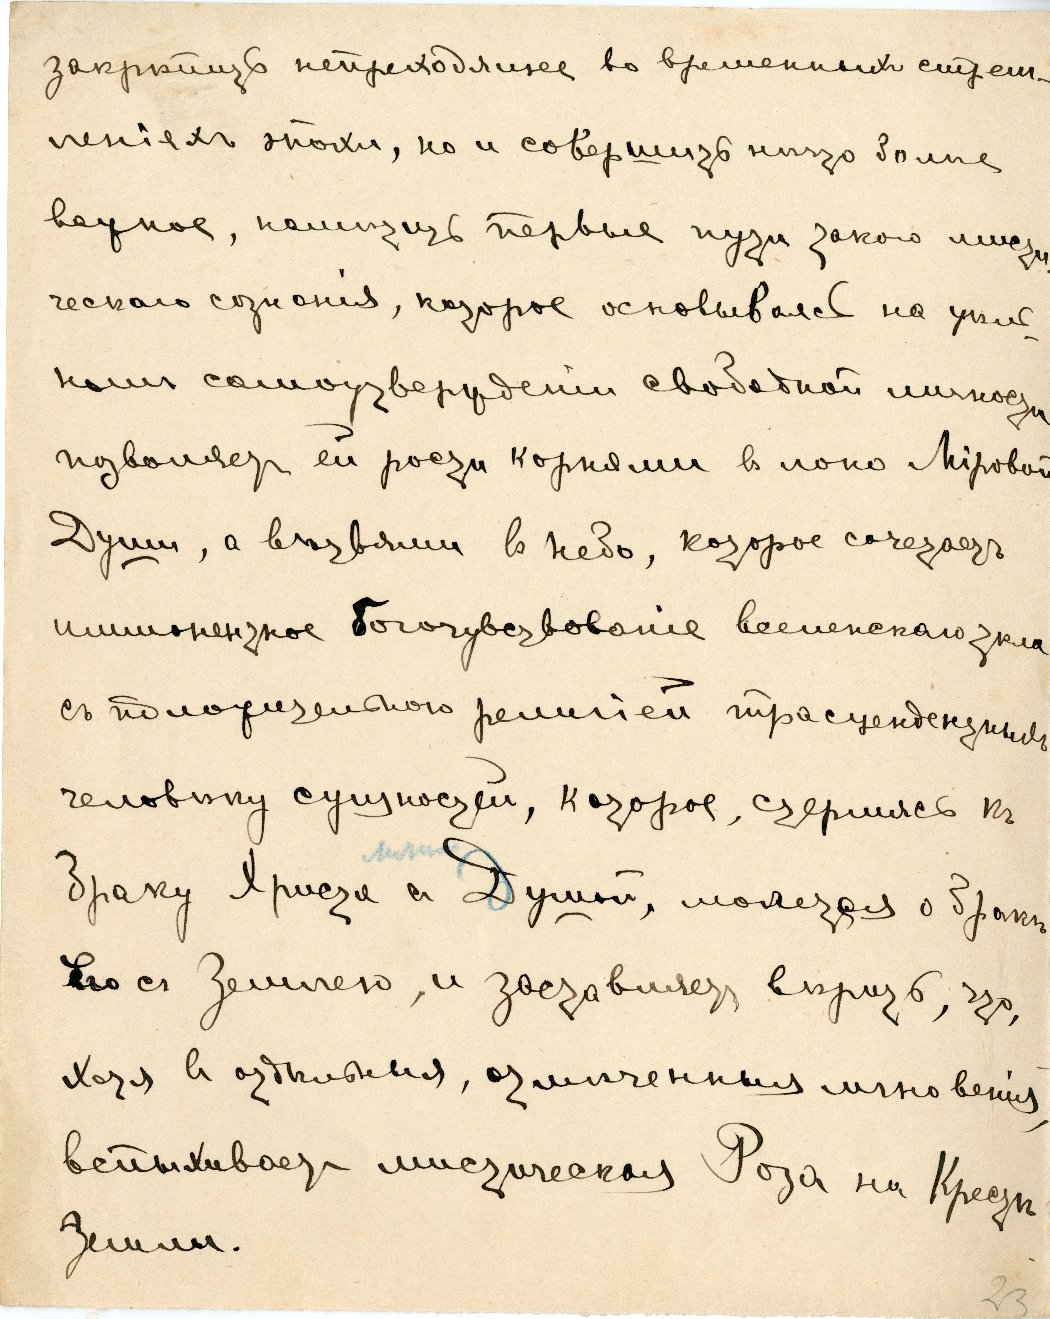 закрѣпить непреходящее во временныхъ стрем-
леніяхъ эпохи, но и совершить нѣчто болѣе
важное, намѣтить первые пути такого мисти-
ческаго сознанія, которое основываясь на
номъ самоутвержденіи свободной личности
позволяетъ ей рости корнями в лоно Міровой
Души, а вѣтвями в небо, которое сочетаетъ
имманентное богочувствованіе вселенскаго тѣла
съ положительною религіей трасцендентныхъ
человѣку сущностей, которое, стремясь къ
браку Христа съ Душой, мечтая о бракѣ
Его съ Землею, и заставляетъ вѣрить, что,
хотя въ отдѣльныя, отмѣченныя мгновенія,
вспыхиваетъ мистическая Роза на Крестѣ
Земли.
23